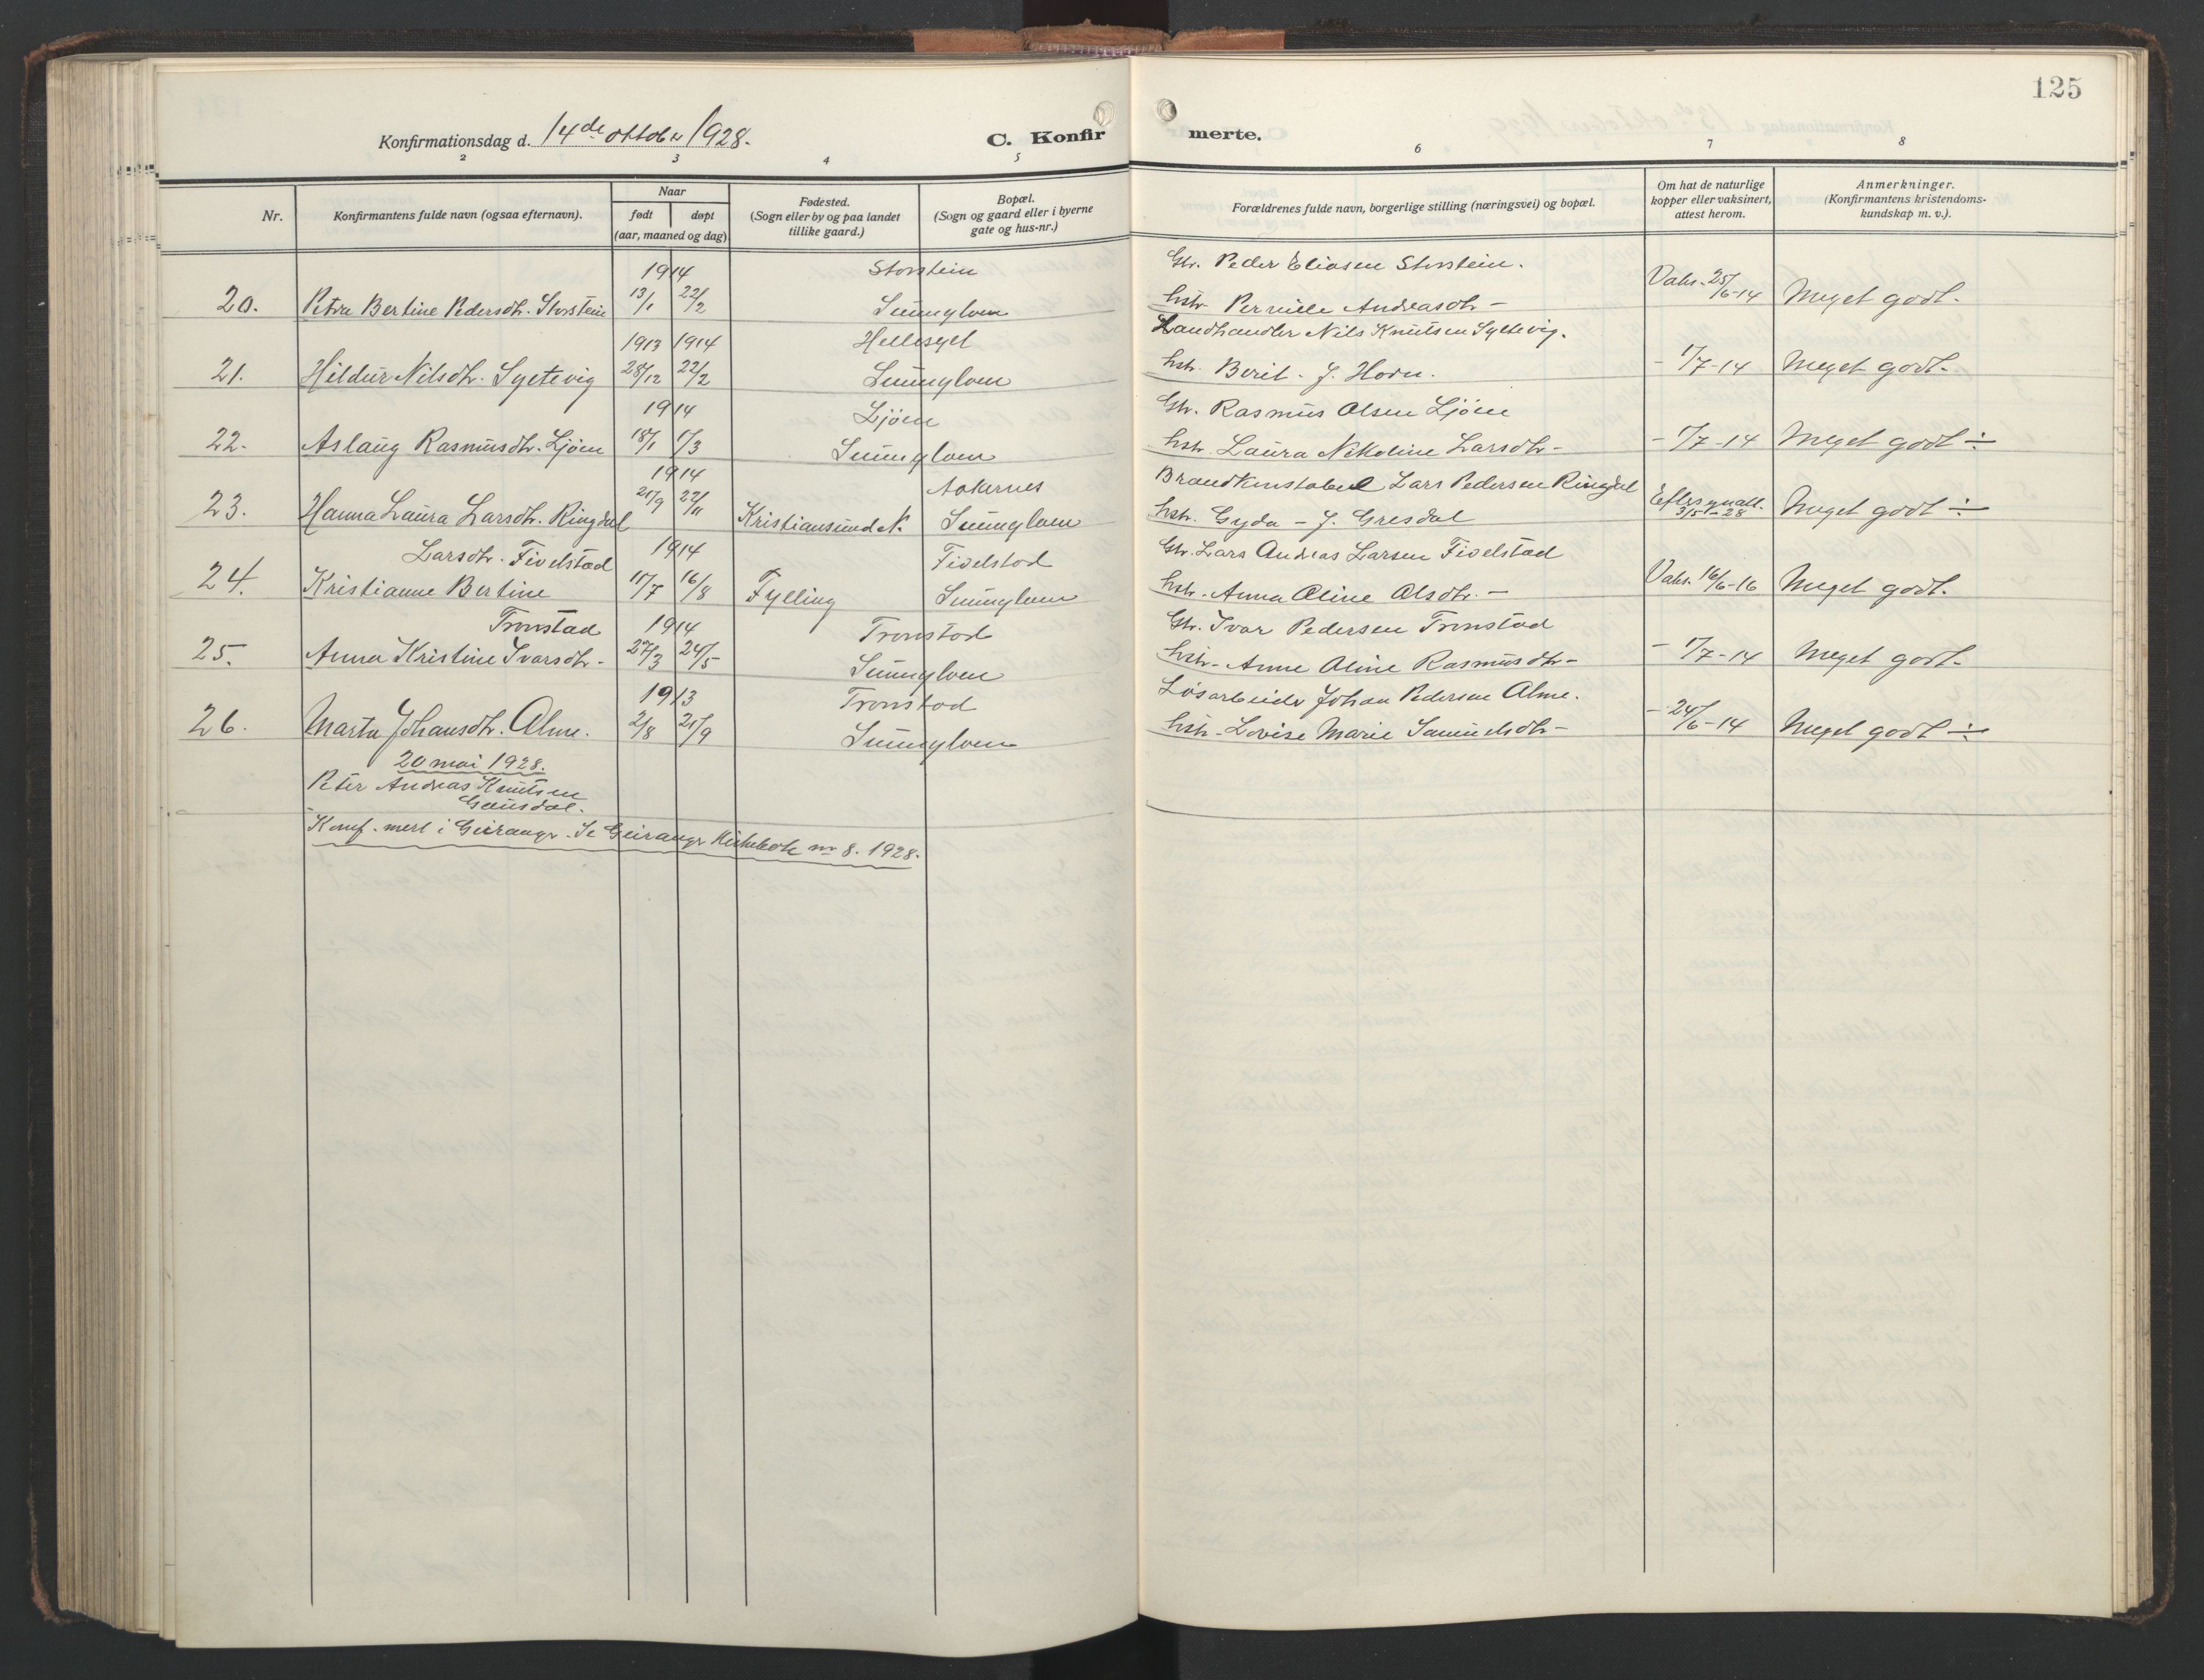 125
Konfirmationsdag d. 14de oktober 1928.
C. Konfir
merte.
2 3 4 5 6 7 8
Nr.
Konfirmantens fulde navn (ogsaa efternavn).
Naar
født
døpt
(aar, maaned og dag)
Fødested.
(Sogn eller by og paa landet
tillike gaard.)
Bopæl.
(Sogn og gaard eller i byerne
gate og hus-nr.)
Forældrenes fulde navn, borgerlige stilling (næringsvei) og bopæl.
Om hat de naturlige
kopper eller vaksinert,
attest herom.
Anmerkninger.
(Konfirmantens kristendoms-
kundskap m. v.).
1914 Storstein Gbr. Peder Eliasen Storstein.
20. Petra Bertine Pedersdtr. Storstein 13/1 22/2 Sunnylven hstr. Pernille Andreasdtr - Vaks. 25/6-14 Meget godt.
1913 1914 Hellesylt Landhandler Nils Knutsen Syltevig.
21. Hildur Nilsdtr. Syltevig 28/12 22/2 Sunnylven hstr. Berit - J. Horn. - 1/7-14 Meget godt-
1914 Ljöen Gbr. Rasmus Olsen Ljöen
22. Aslaug Rasmusdtr. Ljöen 18/1 1/3 Sunnylven hstr. Laura Nikoline Larsdtr - - 1/7-14 Meget godt ÷
1914 Aakernes Brandkonstabel Lars Pedersen Ringdal
23. Hanna Laura Larsdtr. Ringdal 21/9 22/11 Kristiansund N. Sunnylven hstr. Gyda - J. Gresdal 9/5-28 Meget godt ÷
Larsdtr. Fivelstad 1914 Fivelstad Gbr. Lars Andreas Larsen Fivelstad
24. Kristianne Bertine 11/7 16/8 Fylling Sunnylven hstr. Anna Oline Olsdtr. - Vaks. 16/6-16 Meget godt.
Tronstad 1914 Tronstad Gbr. Ivar Pedersen Tronstad
25. Anna Kristine Ivarsdtr - 27/3 24/5 Sunnylven hstr - Anne Oline Rasmusdtr - - 1/7-14 Meget godt-
1913 Tronstad Løsarbeider Johan Pedersen Alme.
26. Marta Johansdtr. Alme. 2/8 21/9 Sunnylven hstr - Lovise Marie Samuelsdtr - - 24/6-14 Meget godt ÷
20 mai 1928.
Peter Andreas Knutsen
Gausdal.
Konf. mert i Geiranger. Se Geiranger Kirkebok nr 8. 1928.